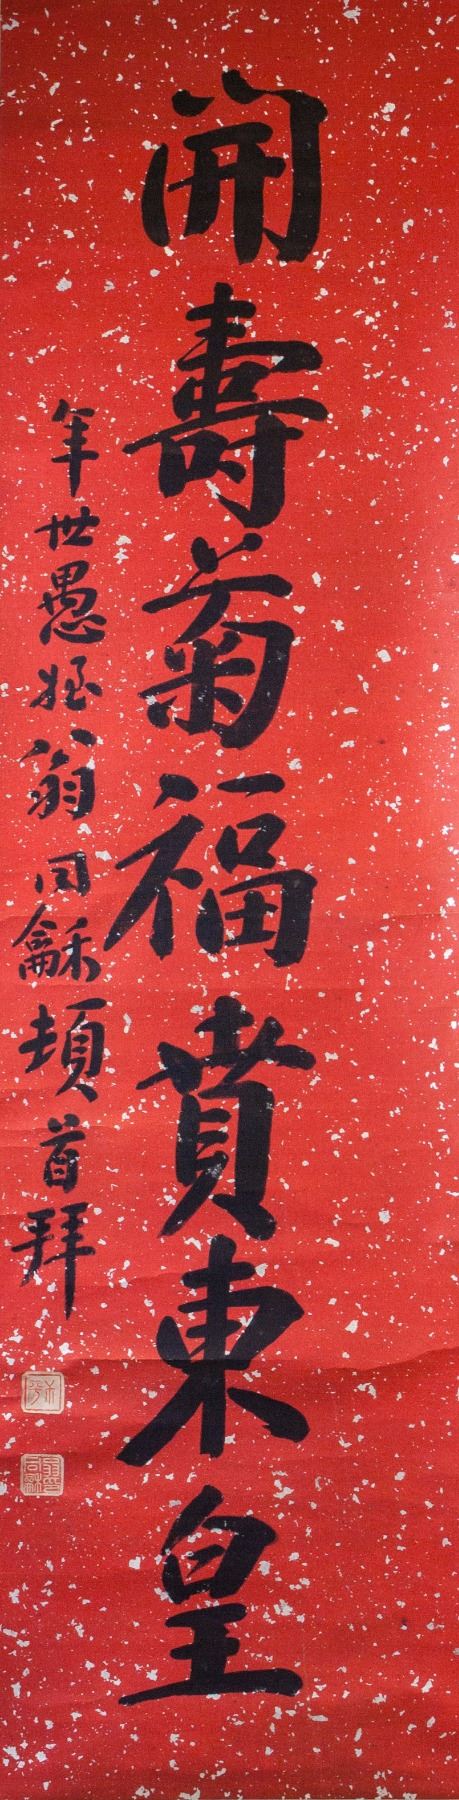 開壽菊福賁東皇
年世愚姪翁同龢頓首拜